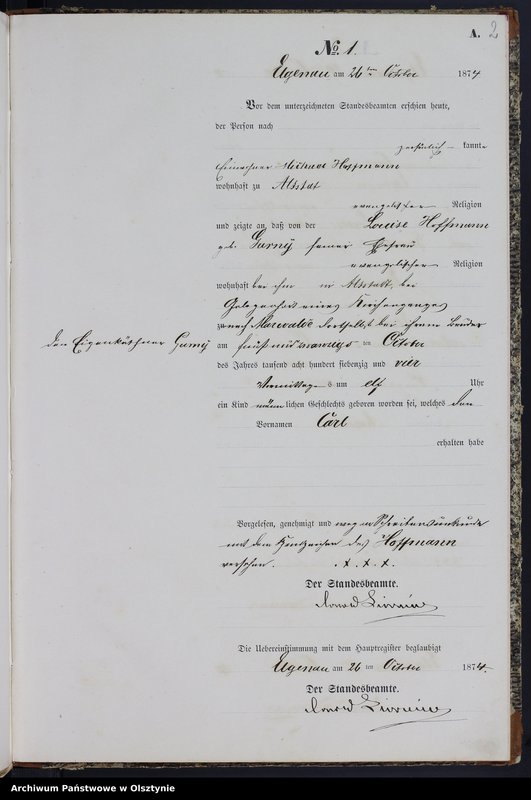 A. 2
No. 1.
Elgenau am 26ten October 1874
Vor dem unterzeichneten Standesbeamten erschien heute,
der Person nach
persönlich kannte
Einwohner Michael Hoffmann
wohnhaft zu Altstadt
evangelischer Religion
und zeigte an, daß von der Louise Hoffmann
geb. Gurny seiner Ehefrau
evangelischer Religion
wohnhaft bei ihm in Altstadt, bei
Gelegenheit eines Kirchenganges
nach Marwalde dortselbst bei ihrem Bruder
den Eigenkäthner Gurny
am fünf und zwanzigsten October
des Jahres tausend acht hundert siebenzig und vier
Vormittags um elf Uhr
ein Kind männlichen Geschlechts geboren worden sei, welches den
Vornamen Carl
erhalten habe
Vorgelesen, genehmigt und wegen Schreibensunkunde
mit dem Handzeichen des Hoffmann
versehen. . x . x . x .
Der Standesbeamte.
Die Uebereinstimmung mit dem Hauptregister beglaubigt
Elgenau am 26 ten October 1874.
Der Standesbeamte.
Archiwum Państwowe w Olsztynie